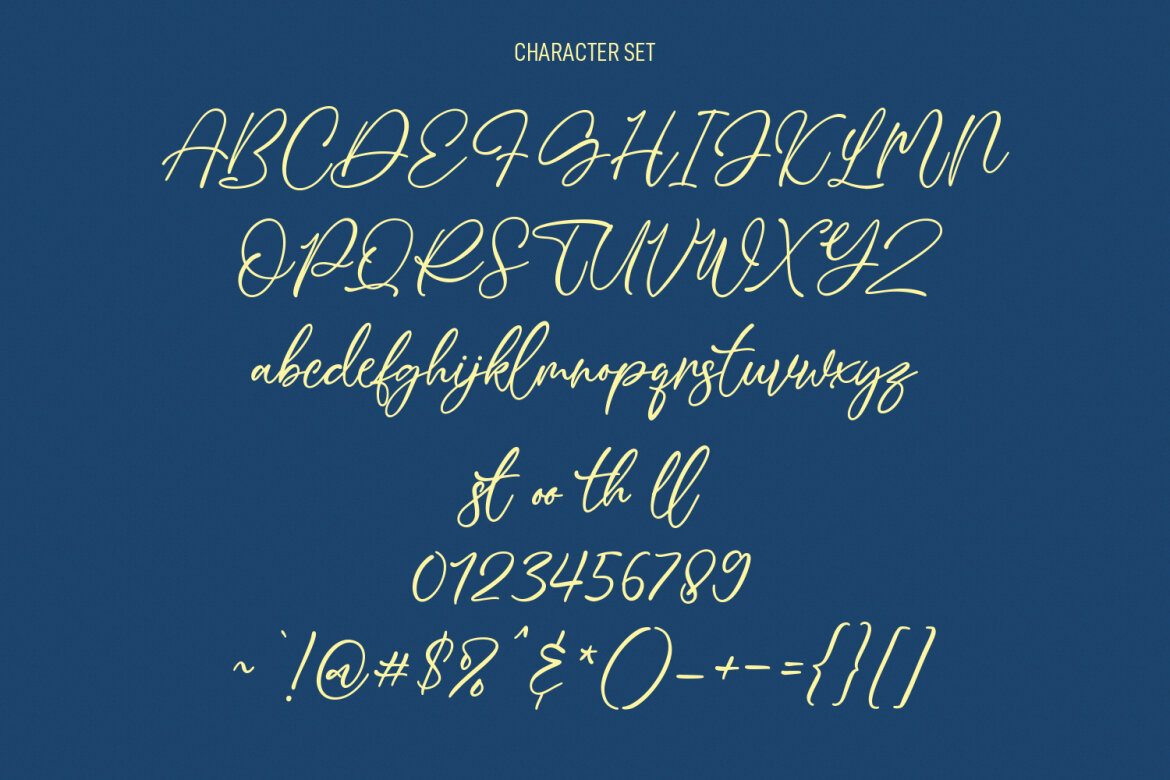 CHARACTER SET
ABCDEFGHIJKLMN
OPQRSTUVWXYZ
abcdefghijklmnopqrstuvwxyz
st oo th ll
0123456789
~`!@#$%^&*()_+-={}[]